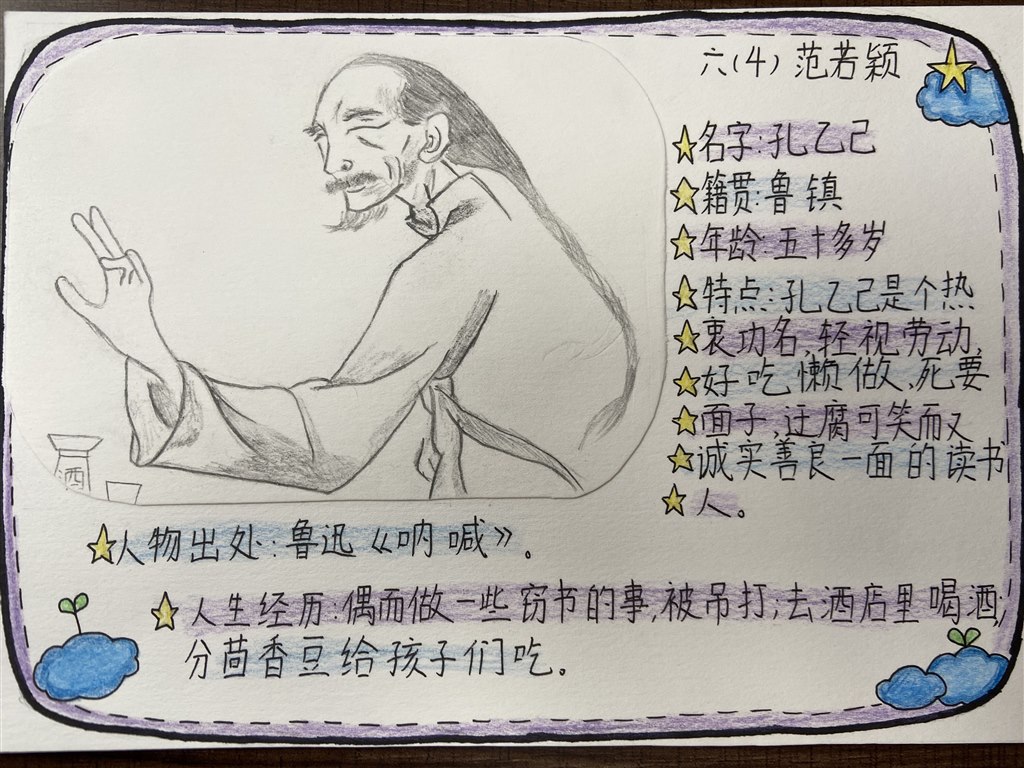 六(4) 范若颖
名字:孔乙己
籍贯:鲁镇
年龄:五十多岁
特点:孔乙己是个热
衷功名,轻视劳动,
好吃懒做、死要
面子,迂腐可笑而又
诚实善良一面的读书
人。
酒
人物出处:鲁迅《呐喊》。
人生经历:偶而做一些窃书的事,被吊打;去酒店里喝酒,
分茴香豆给孩子们吃。